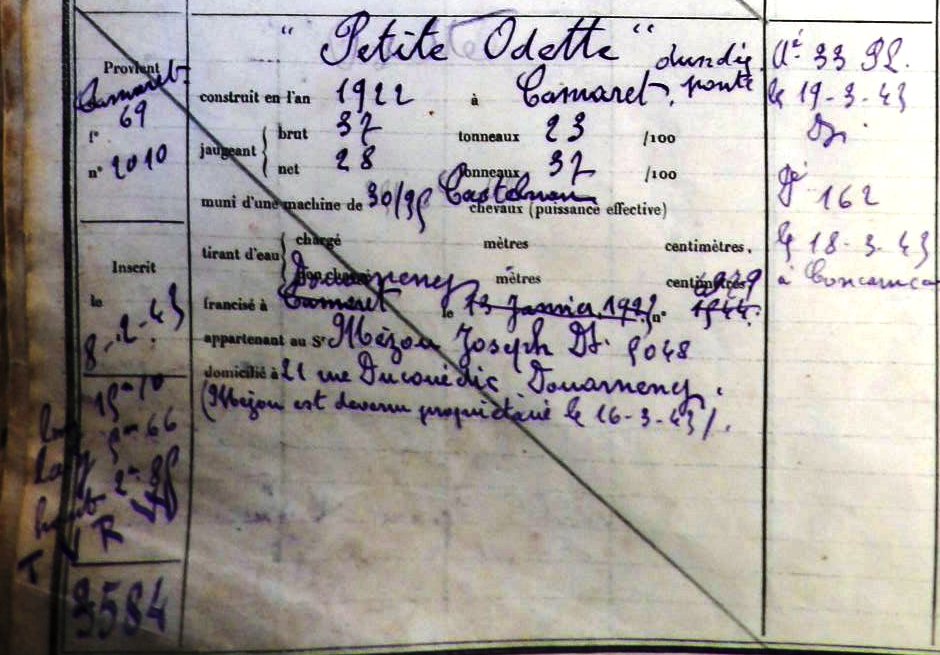 " Petite Odette " dundée
Provient
Camaret
f° 69
n° 2010
construit en l'an 1922 à Camaret, ponté
jaugeant brut 37 tonneaux 23 /100
net 28 tonneaux 37 /100
muni d'une machine de 30/35 chevaux (puissance effective)
tirant d'eau chargé mètres centimètres.
mètres centimètres
Douarnenez
francisé à Camaret le 13 Janvier 192 n° 1544
appartenant au Sr Mézou Joseph Dz. 5048
domicilié à 21 rue Ducouédic Douarnenez.
(Mézou est devenu propriétaire le 16-3-43).
Inscrit
le
8-2-43
15m 10
5m 66
2m 85
T V R
3584
33
le 19-3-43
162
le 18-3-43
à Concarneau